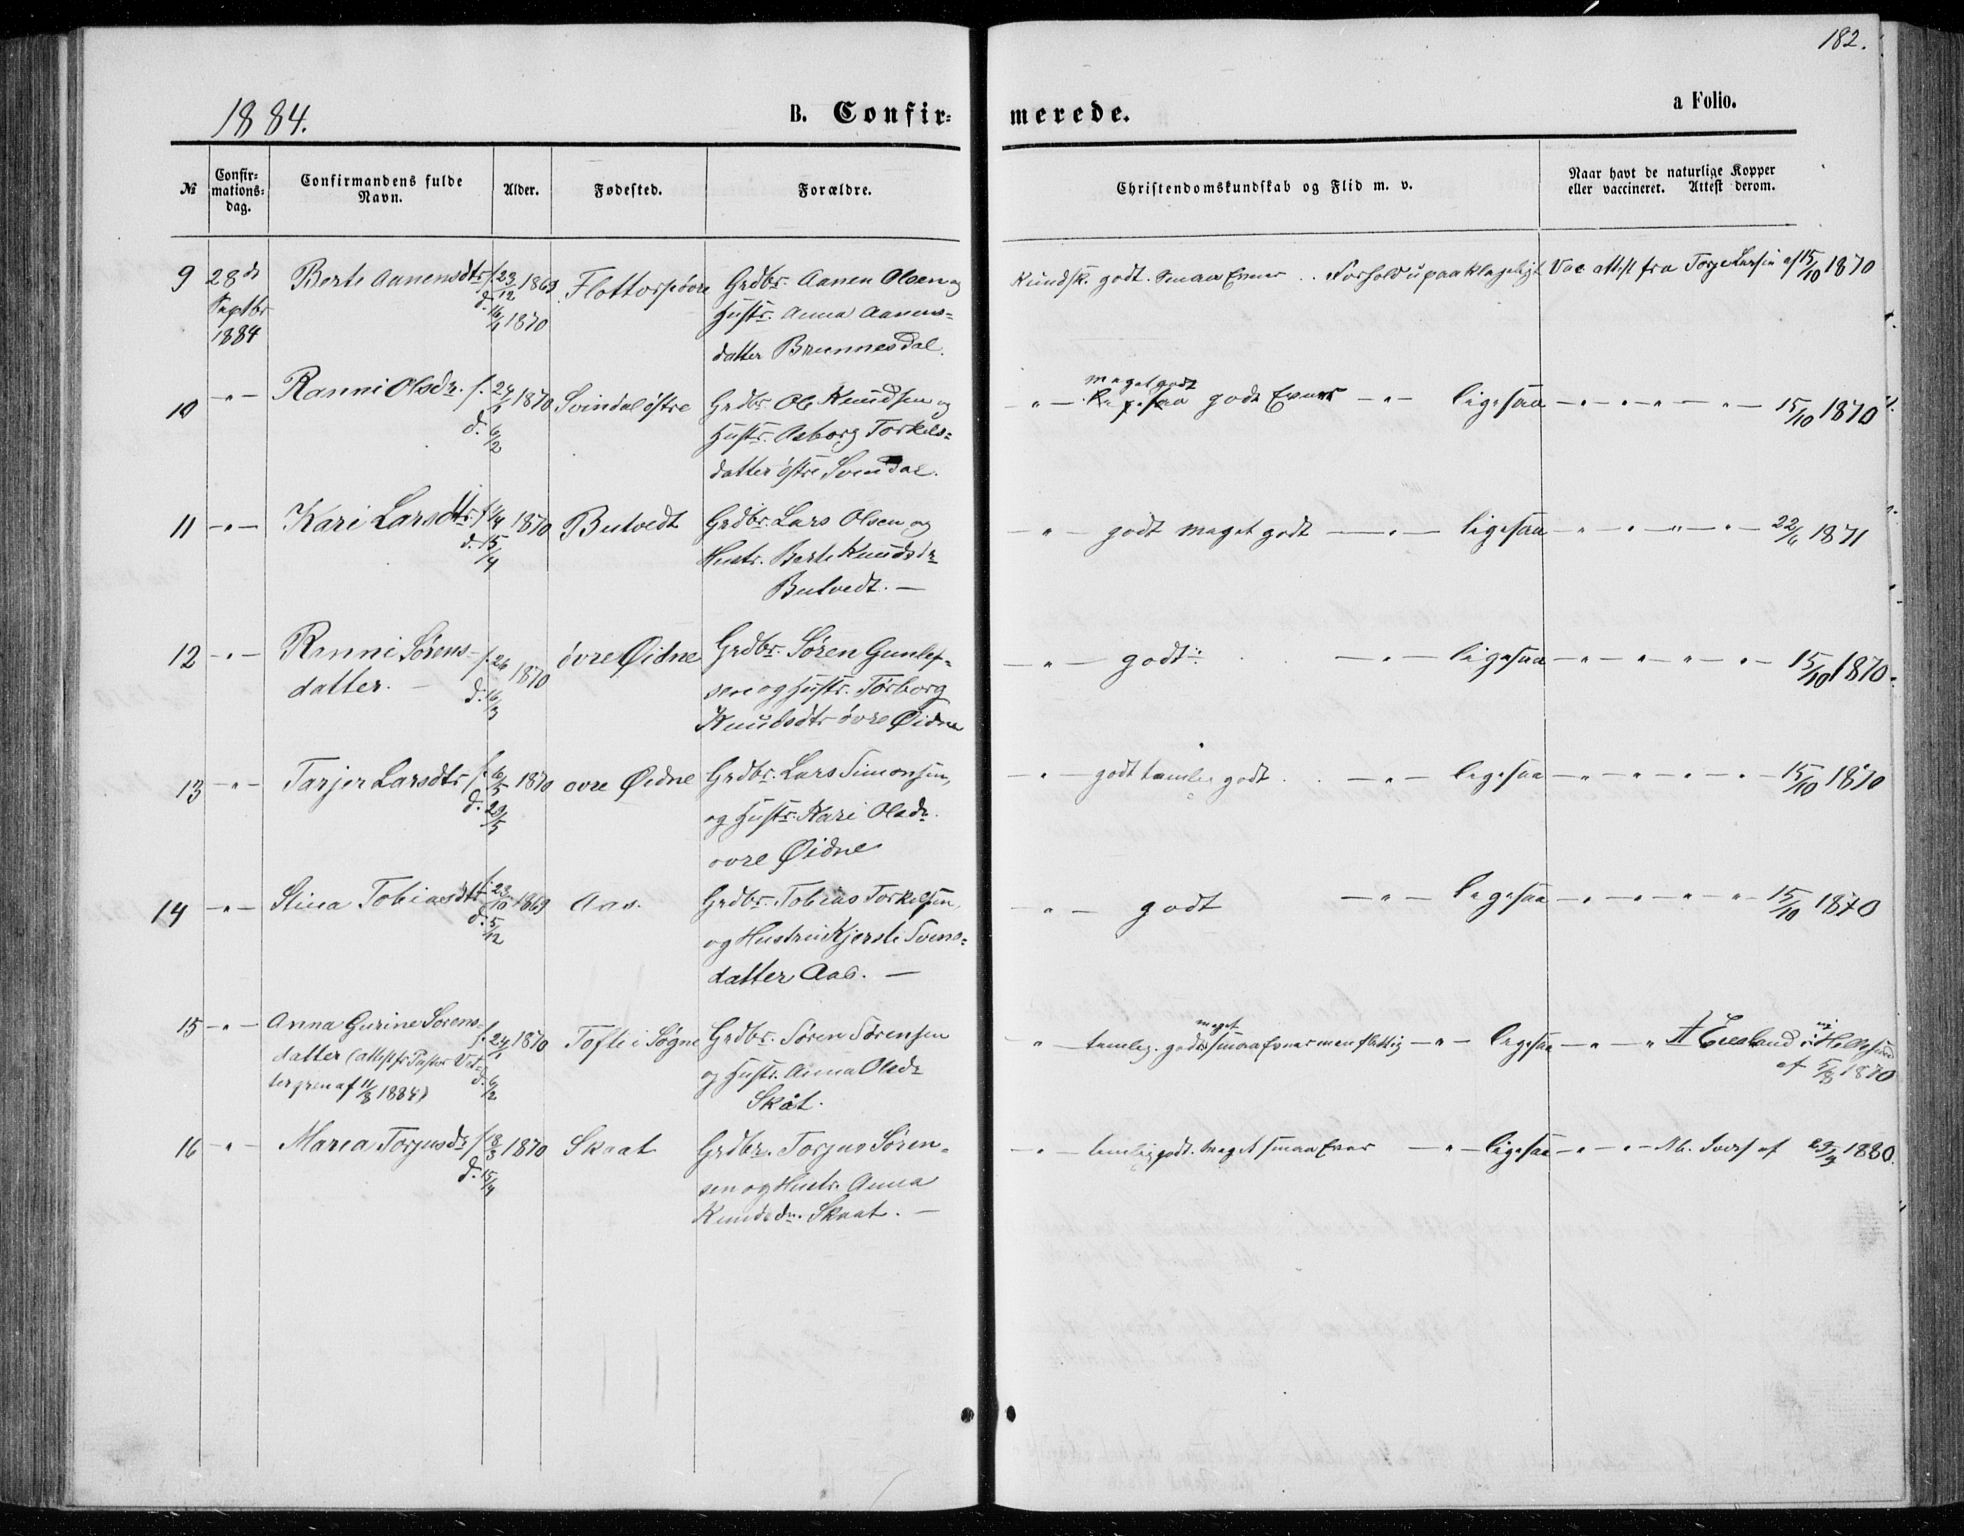 182.
1884.
B. Confir=
merede.
a Folio.
№
Confir=
mations=
dag.
Confirmandens fulde
Navn.
Alder.
Fødested.
Forældre.
Christendomskundskab og Flid m. v.
Naar havt de naturlige Kopper
eller vaccineret. Attest derom.
9 28de Septbr 1884 Berte Aanensdtr f. 23/12 1869 d. 16/1 1870 Flottorp øvre Grdbr. Aanen Olsen og
Hustr. Anna Aanens=
datter Brunnesdal.
Kundsk. godt. Smaa Evner . . Forhold upaaklageligt Vac attest fra Torje Larsen af 15/10 1870
10 -"- Ranni Olsdr. f. 24/1 1870 d. 6/2 Svindal østre Grdbr. Ole Knudsen og
Hustr. Asborg Torkels=
datter østre Svindal.
-"- meget godt gode Evner -"- ligesaa -"-"-"-"- 15/10 1870
11 -"- Kari Larsdtr. f. 1/4 1870 d. 15/4 Butvedt Grdbr. Lars Olsen og
Hustr. Berte Knudsdr
Butvedt. —
-"- godt meget godt -"- ligesaa -"-"-"-"- 22/6 1871
12 -"- Ranni Sørens-
datter. — f. 26 1870 d. 16/3 øvre Øidne Grdbr. Søren Gunlef-
sen og Hustr. Torborg
Knudsdtr øvre Øidne
-"- godt -"- ligesaa -"-"-"-"- 15/10 1870.
13 -"- Tarjer Larsdtr f. 6/5 1870 d. 29/5 øvre Øidne Grdbr. Lars Simonsen,
og Hustr. Kari Olsdr.
øvre Øidne
-"- godt temlig godt . . -"- ligesaa -"-"-"-"- 15/10 1870
14 -"- Stina Tobiasdtr f. 23/10 1869 d. 5/12 Aas. Grdbr. Tobias Torkelsen,
og Hustru Kjersti Svens=
datter Aas. —
-"- godt -"- ligesaa -"-"-"-"- 15/10 1870
15 -"- Anna Gurine Sørens=
datter (attest fr Pastor Vet-
tergren af 11/8 1884) f. 24/1 1870 d. 6/2 Tofte i Søgne Grdbr. Søren Sørensen
og Hustr. Anna Olsdr
Skåt.
-"- temlig. godt meget smaa Evner men flittig -"- ligesaa -"-"- A Eieland i Ny Hellesund
af 5/8 1870
16 -"- Maria Torjusdr f. 18/3 1870 d. 15/4 Skaat Grdbr. Torjus Søren-
sen og Hustr. Anna
Knudsdr. Skaat. —
-"- temlig godt. Meget smaa Evner -"- ligesaa -"-"- af 23/9 1880.